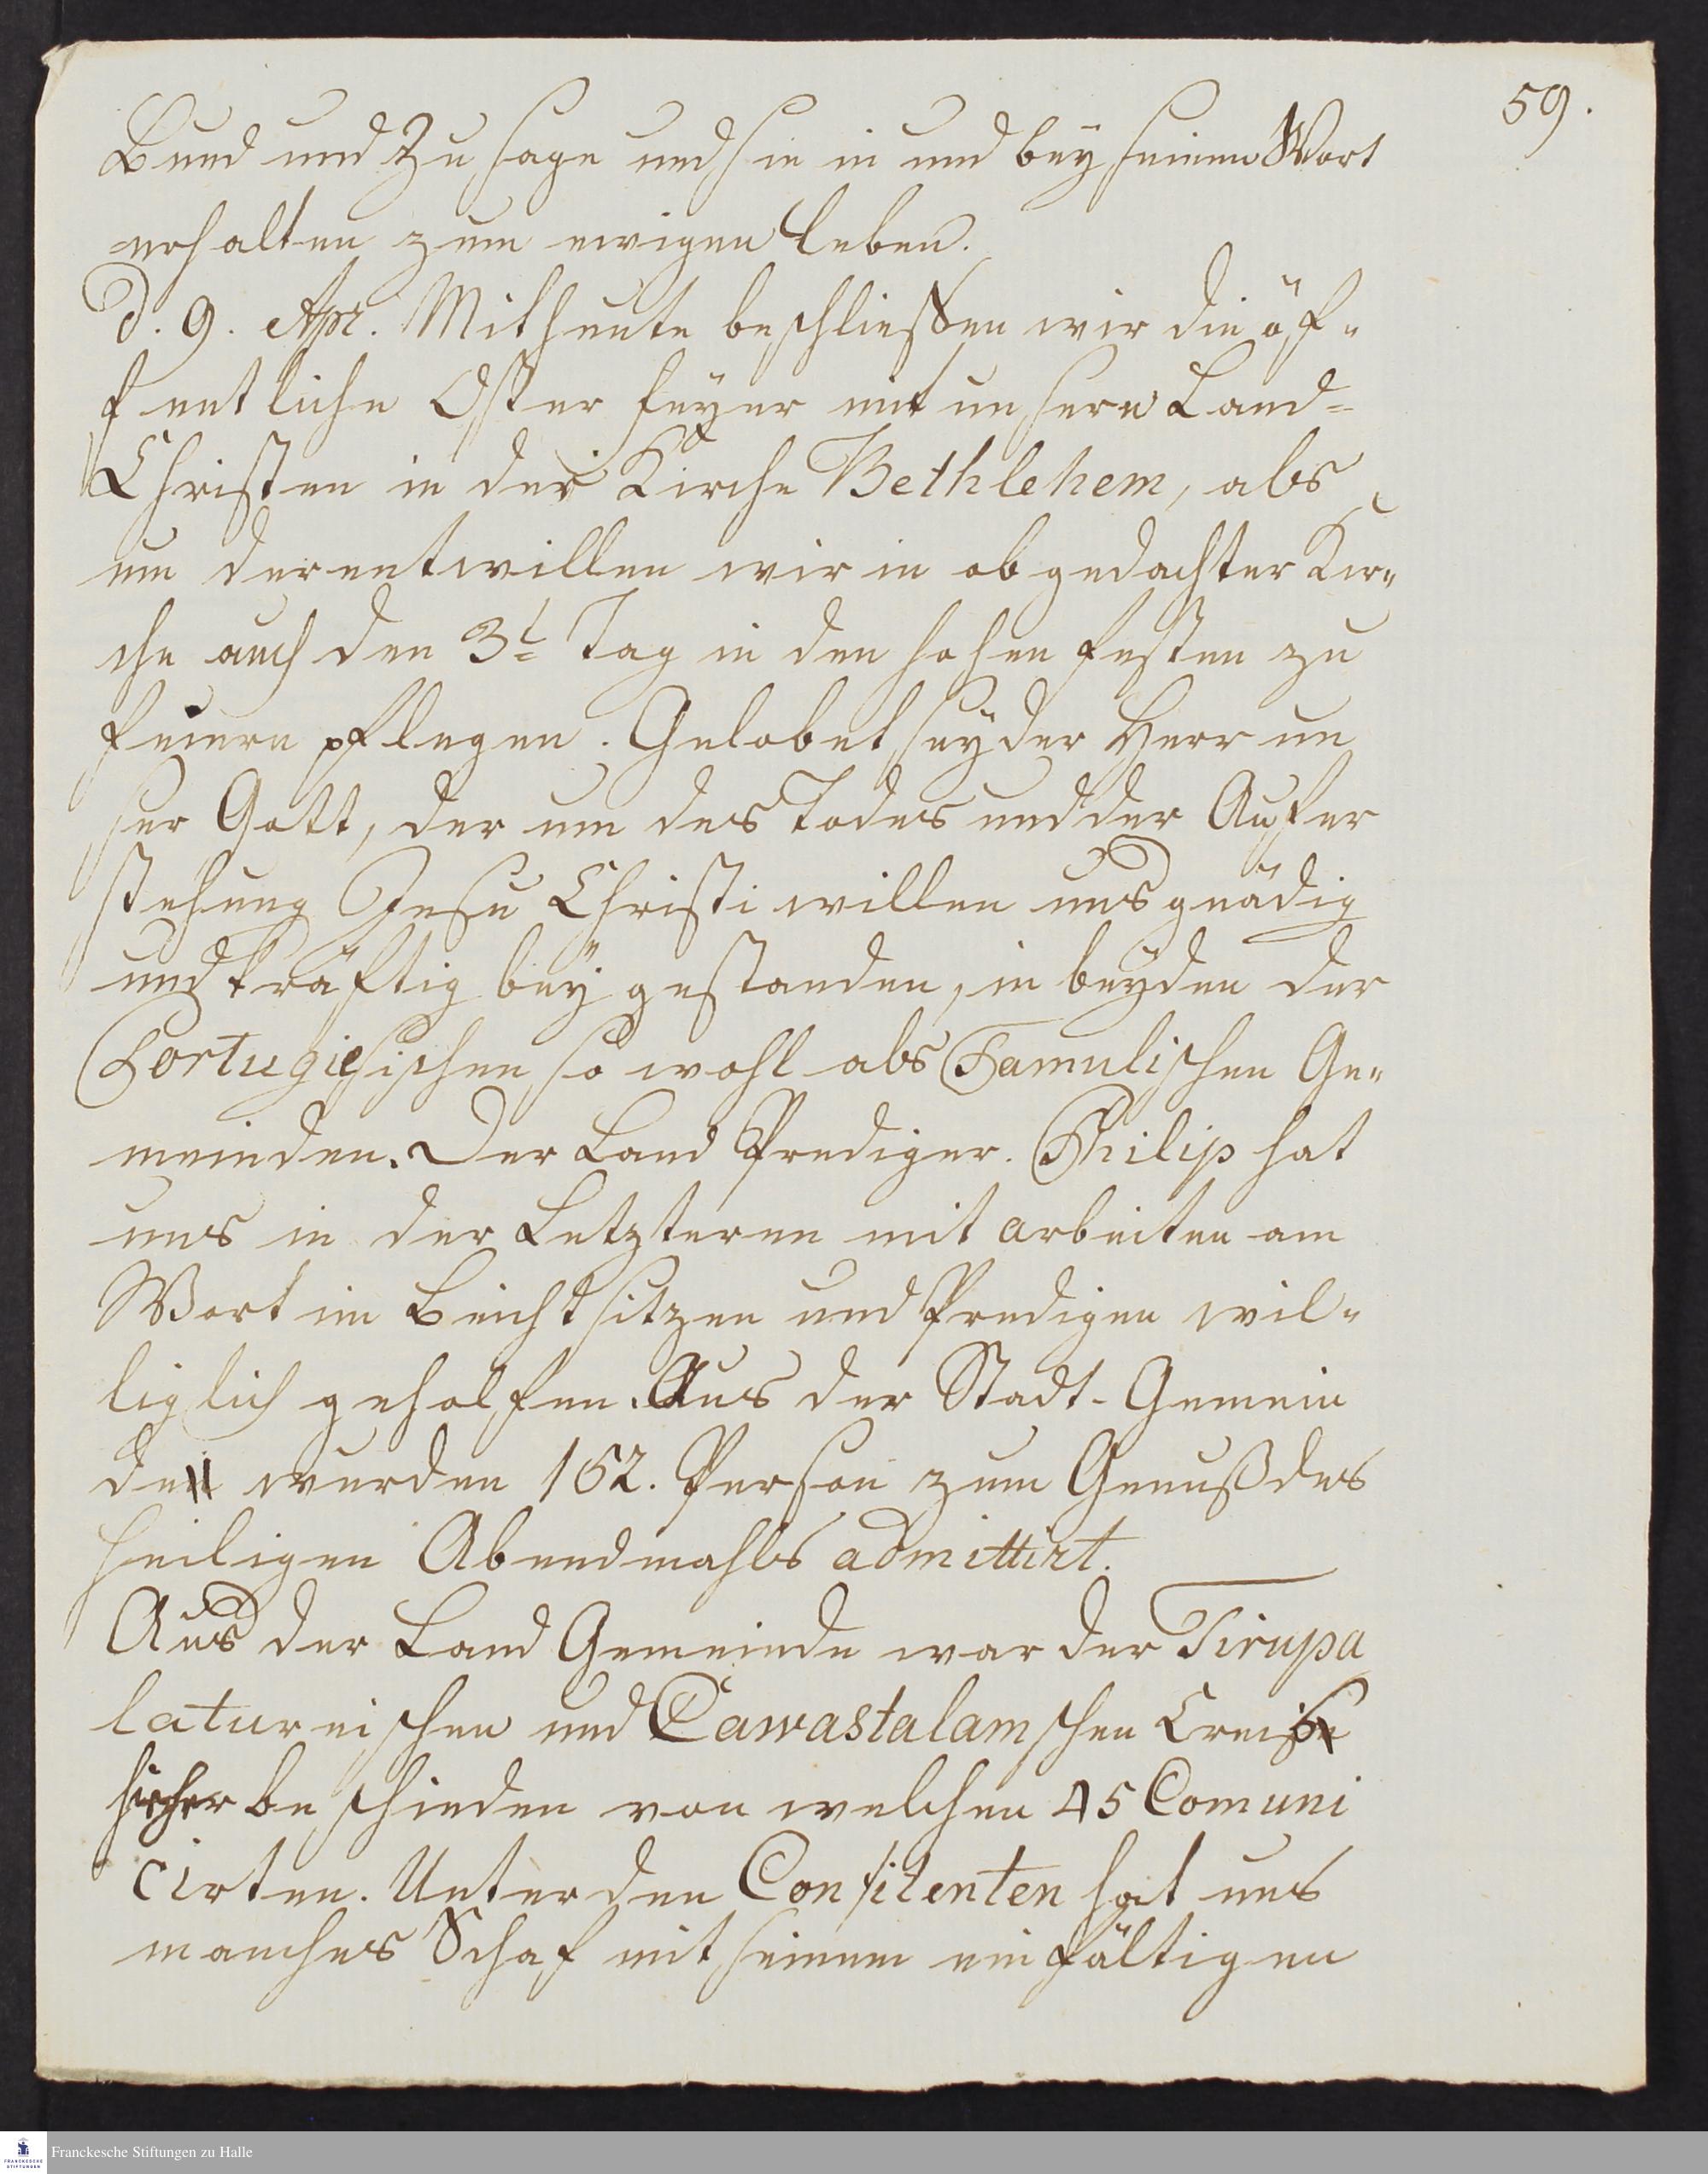 59.
Bund und Zusage und sie in und bey seinem Wort
erhalten zum ewigen Leben.
d. 9. Apr. Mit heute beschließen wir die öf-
fentliche Oster feyer mit unsern Land-
Christen in der Kirche Bethlehem, als
um derentwillen wir in obgedachter Kir-
che auch den 3t Tag in den hohen Festen zu
feiern pflegen. Gelobet sey der Herr un
ser Gott, der um des Todes und der Aufer
stehung Jesu Christi willen uns gnädig
und kräftig bey gestanden, in beyden der
Portugiesischen so wohl als Tamulischen Ge-
meinden. Der Land Prediger. Philip hat
uns in der Letzteren mit arbeiten am
Wort im Beichtsitzen und Predigen wil-
liglich geholfen. Aus der Stadt-Gemein
den wurden 162. Person zum Genuß des
heiligen Abendmahls admittirt.
Aus der Land Gemeinde war der Tirupa
laturaischen und Cawastalamschen Creiß
hieher beschieden von welchen 45 Comuni
cirten. Unter den Confitenten hat uns
manches Schaf mit seinem einfältigen
Franckesche Stiftungen zu Halle
FRANCKESCHE
STIFTUNGEN